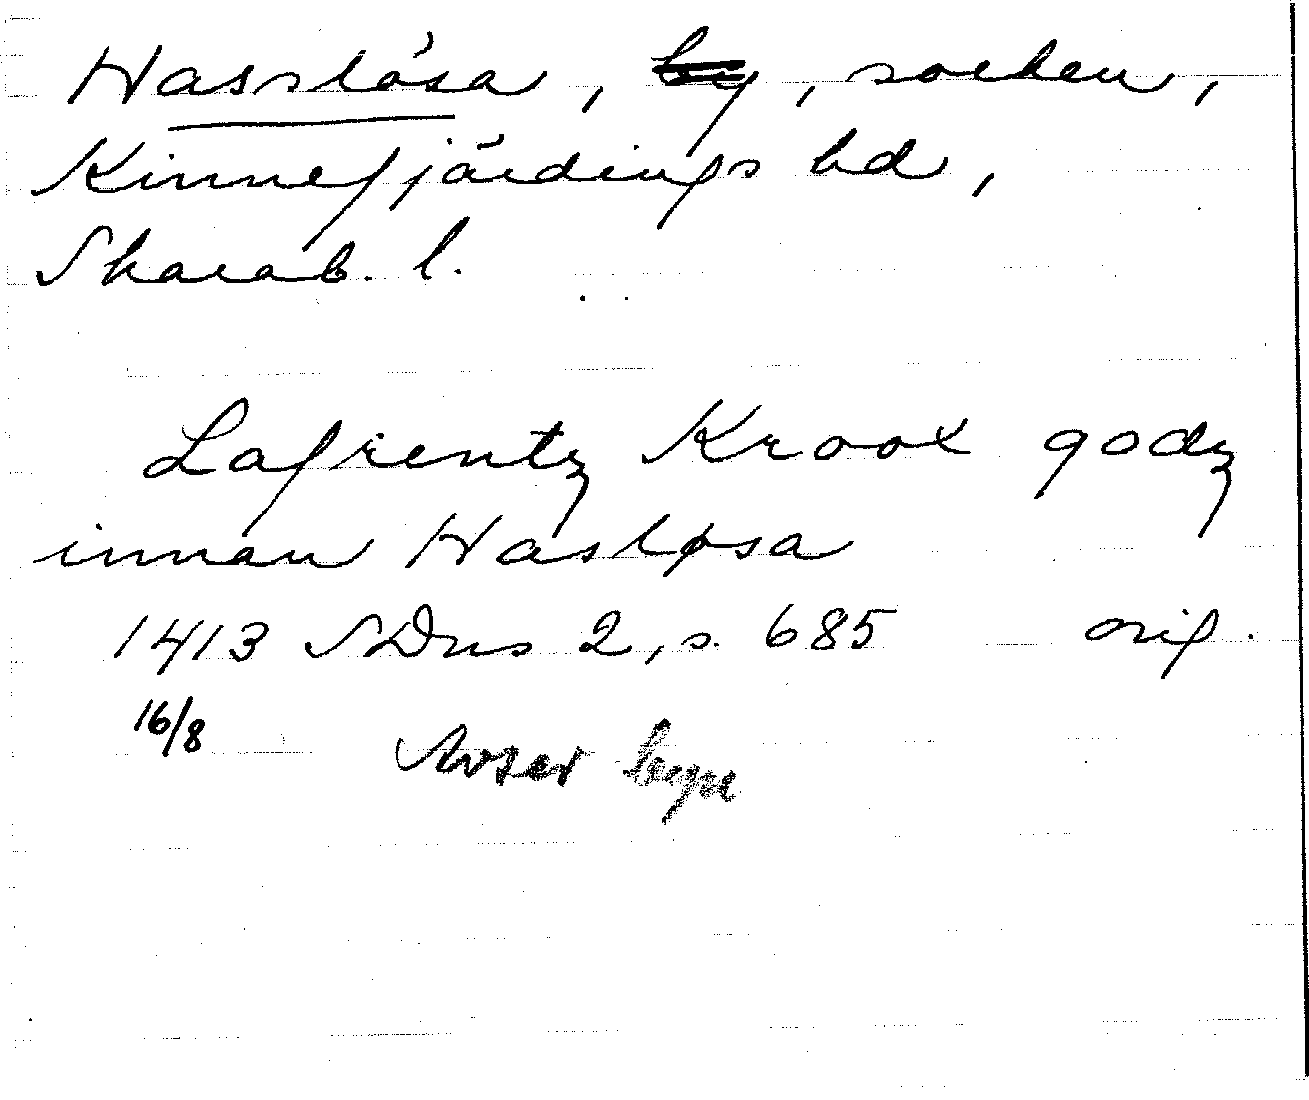 Hasslösa, by, socken,
Kinnefjärdings hd,
Skarab. l.
Lafrentz Kroox godz
innan Hasløsa
1413 SDns 2, s. 685 orig.
16/8 Avser byn